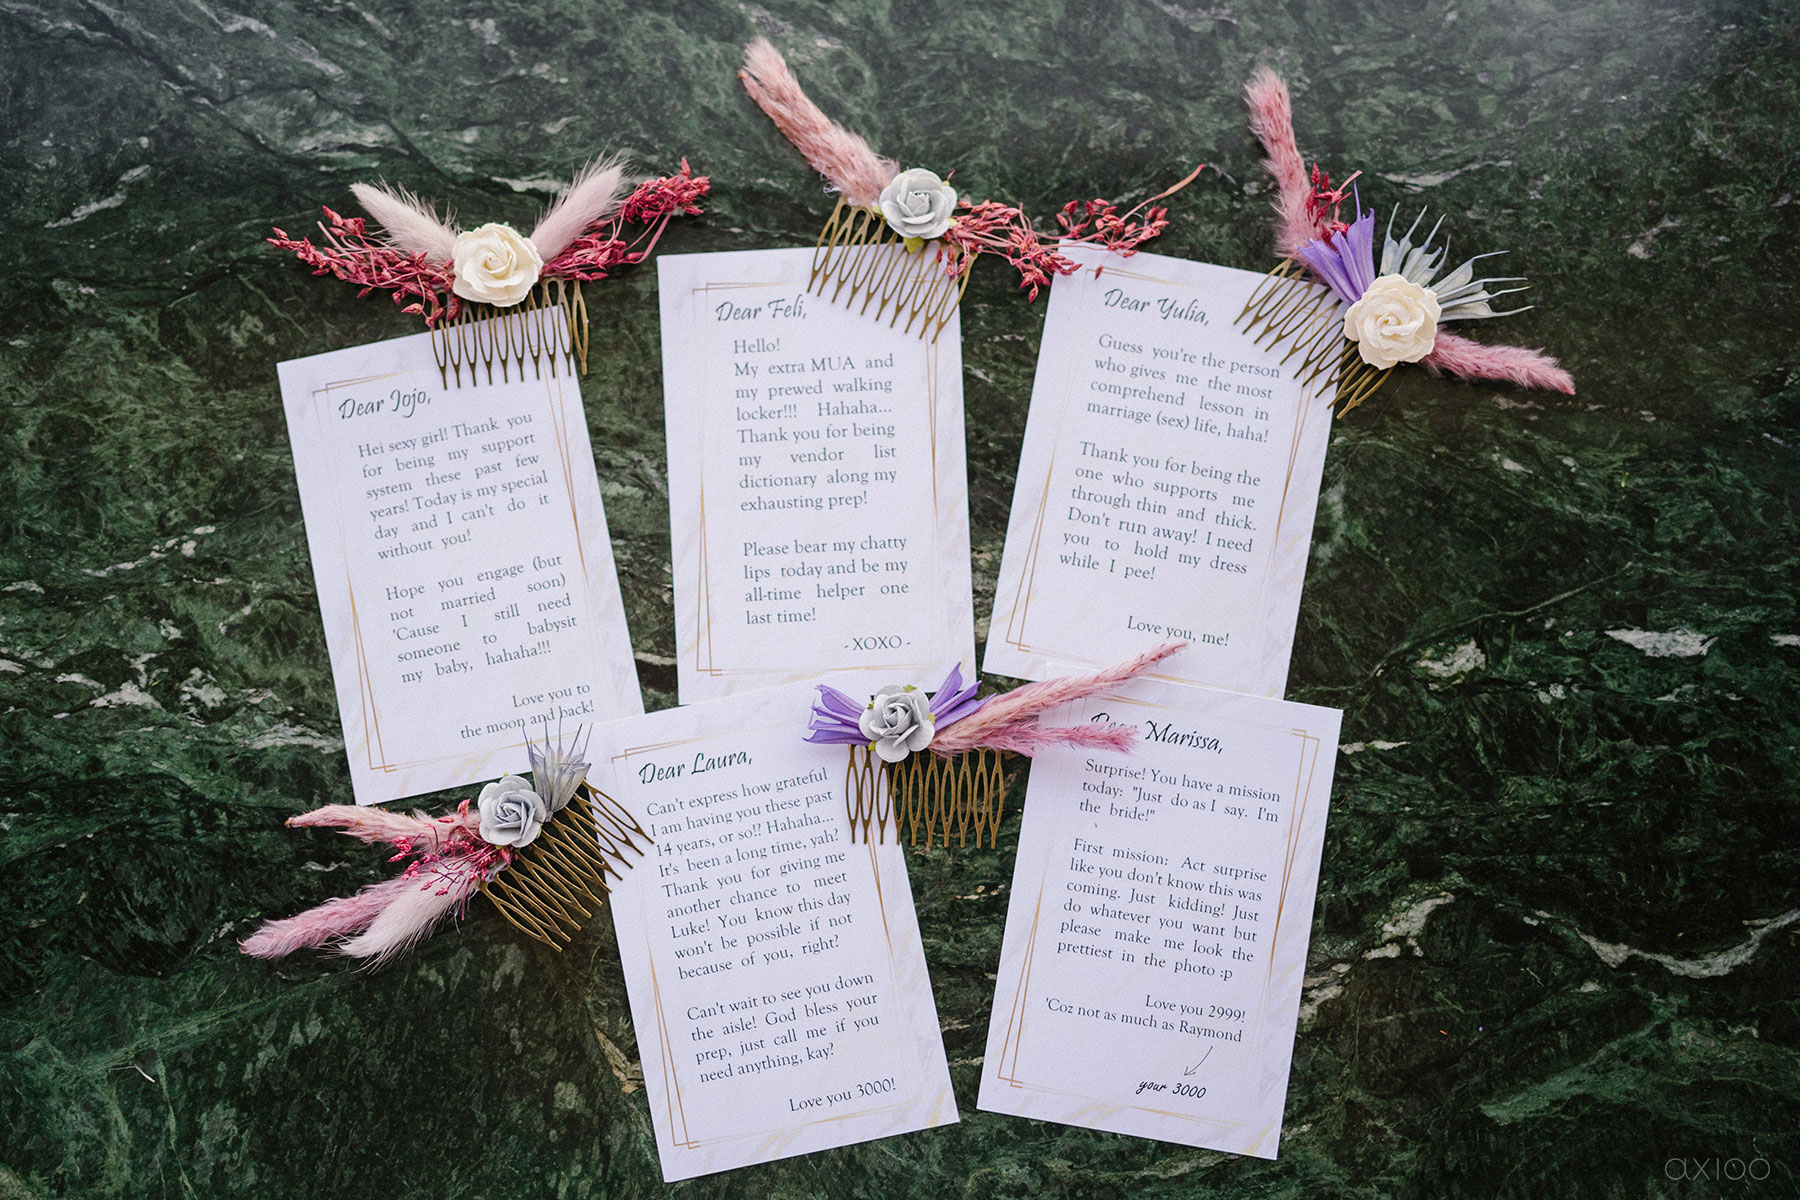 Dear Jojo,
Hei sexy girl! Thank you
for being my support
system these past few
years! Today is my special
day and I can't do it
without you!
Hope you engage (but
not married soon)
'Cause I still need
someone to babysit
my baby, hahaha!!!
Love you to
the moon and back!
Dear Feli,
Hello!
My extra MUA and
my prewed walking
locker!!! Hahaha...
Thank you for being
my vendor list
dictionary along my
exhausting prep!
Please bear my chatty
lips today and be my
all-time helper one
last time!
- XOXO -
Dear Yulia,
Guess you're the person
who gives me the most
comprehend lesson in
marriage (sex) life, haha!
Thank you for being the
one who supports me
through thin and thick.
Don't run away! I need
you to hold my dress
while I pee!
Love you, me!
Dear Laura,
Can't express how grateful
I am having you these past
14 years, or so!? Hahaha...
It's been a long time, yah?
Thank you for giving me
another chance to meet
Luke! You know this day
won't be possible if not
because of you, right?
Can't wait to see you down
the aisle! God bless your
prep, just call me if you
need anything, kay?
Love you 3000!
Dear Marissa,
Surprise! You have a mission
today: "Just do as I say. I'm
the bride!"
First mission: Act surprise
like you don't know this was
coming. Just kidding! Just
do whatever you want but
please make me look the
prettiest in the photo :p
Love you 2999!
'Coz not as much as Raymond
your 3000
axioo